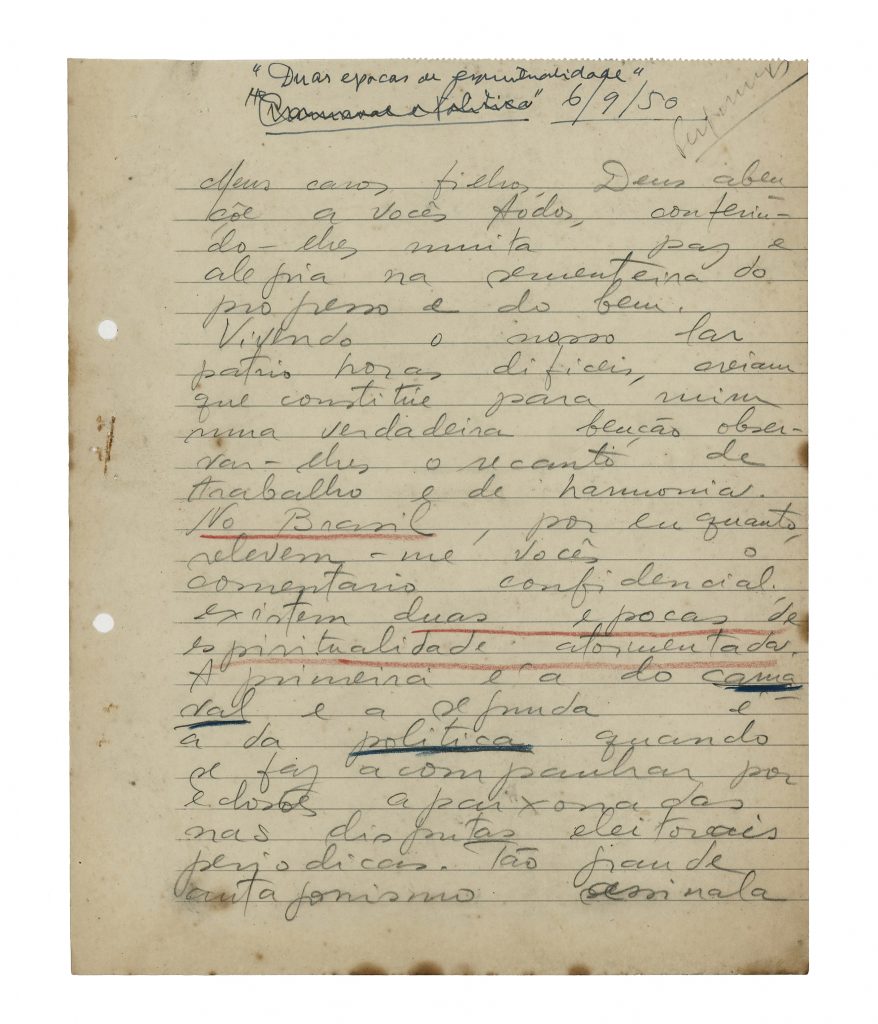 "Duas epocas de espiritualidade"
"Carnaval e Politica" 6/9/50
Meus caros filhos, Deus aben
çõe a vocês todos, conferin-
do-lhes muita paz e
alegria na sementeira do
progresso e do bem.
Vivendo o nosso lar
patrio horas dificeis, creiam
que constitúe para mim
uma verdadeira benção obser-
var-lhes o recanto de
trabalho e de harmonia.
No Brasil, por enquanto,
relevem-me vocês o
comentario confidencial,
existem duas epocas de
espiritualidade atormentada.
A primeira é a do carna-
val e a segunda é
a da politica quando
se faz acompanhar por
apaixonadas
nas disputas eleitorais
periodicas. Tão grande
antagonismo assinala